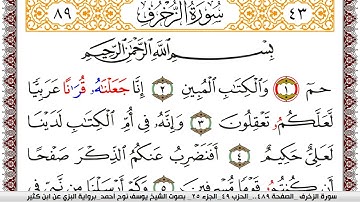 ٨٩ سُورَةُ الزُّخْرُفِ ٤٣
بِسْمِ اللَّهِ الرَّحْمَٰنِ الرَّحِيمِ
حمٓ ١ وَالْكِتَابِ الْمُبِينِ ٢ إِنَّا جَعَلْنَاهُۥ قُرَانًا عَرَبِيًّا
لَّعَلَّكُمُۥ تَعْقِلُونَ ٣ وَإِنَّهُۥ فِىٓ أُمِّ الْكِتَابِ لَدَيْنَا
لَعَلِىٌّ حَكِيمٌ ٤ أَفَنَضْرِبُ عَنكُمُ الذِّكْرَ صَفْحًا
أَن كُنتُمُۥ قَوْمًا مُّسْرِفِينَ ٥ وَكَمْ أَرْسَلْنَا مِن نَّبِىٍّ
سورة الزخرف .. الصفحة ٤٨٩.. الحزب ٤٩ ..الجزء ٢٥ .. بصوت الشيخ يوسف نوح أحمد ..برواية البزي عن ابن كثير